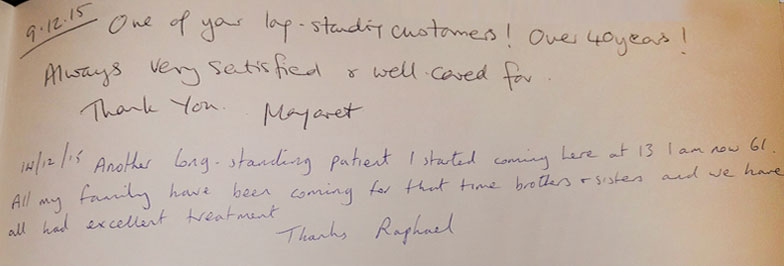 9.12.15 One of your long-standing customers! Over 40 years!
Always very satisfied & well cared for.
Thank You. Margaret
14/12/15 Another long-standing patient I started coming here at 13 I am now 61.
All my family have been coming for that time brothers & sisters and we have
all had excellent treatment
Thanks Raphael